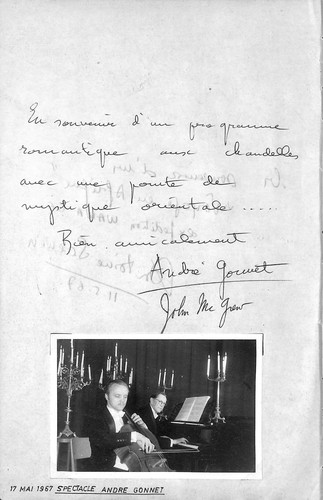 En souvenir d'un programme
romantique aux chandelles
avec une pointe de
mystique orientale .....
Bien amicalement
André Gonnet
John Mc Grew
17 MAI 1967 SPECTACLE ANDRE GONNET